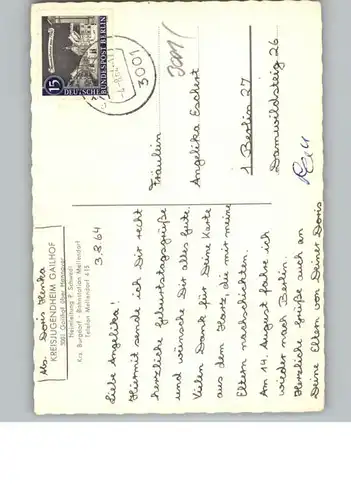 Abs. Doris Henka
KREISJUGENDHEIM GAILHOF
3001 Gailhof über Hannover
Heimleitung P. Schwendt
Krs. Burgdorf - Bahnstation Mellendorf
Telefon Mellendorf 415
3.8.64
Liebe Angelika!
Hiermit sende ich Dir recht
herzliche Geburtstagsgrüße
und wünsche Dir alles Gute.
Vielen Dank für Deine Karte
aus dem Harz, die mir meine
Eltern nachschickten.
Am 14. August fahre ich
wieder nach Berlin.
Herzliche Grüße auch an
Deine Eltern von Deiner Doris
15
DEUTSCHE
BUNDESPOST BERLIN
3001
Fräulein
Angelika Eschert
1 Berlin 27
Damwildsteig 26